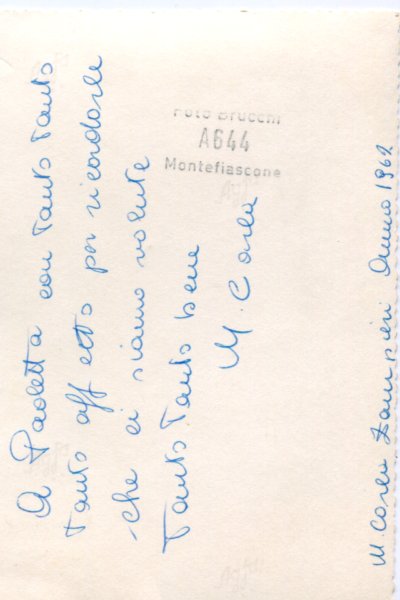 A Paoletta con tanto tanto
tanto affetto per ricordarle
che ci siamo volute
tanto tanto bene
M. Carla
Foto Brucchi
A644
Montefiascone
M. Carla Zampieri Anno 1962